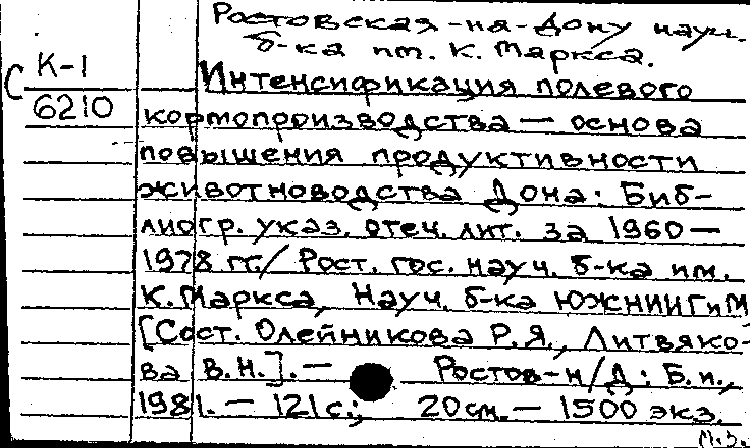 Ростовская-на-Дону науч.
б-ка им. К. Маркса.
С К-1
6210
Интенсификация полевого
кормопроизводства — основа
повышения продуктивности
животноводства Дона: Биб-
лиогр. указ. отеч. лит. за 1960—
1978 гг./ Рост. гос. науч. б-ка им.
К. Маркса, Науч. б-ка ЮЖНИИГиМ
[Сост. Олейникова Р.Я., Литвяко-
ва В.Н.]. — Ростов-н/Д: Б.и.,
1981. — 121 с.; 20 см. — 1500 экз.